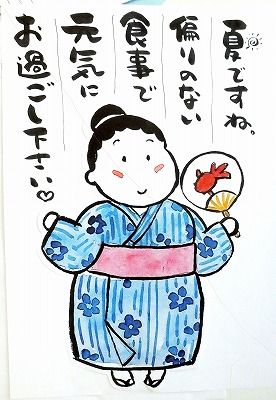 夏ですね。
偏りのない
食事で
元気に
お過ごし下さい♡